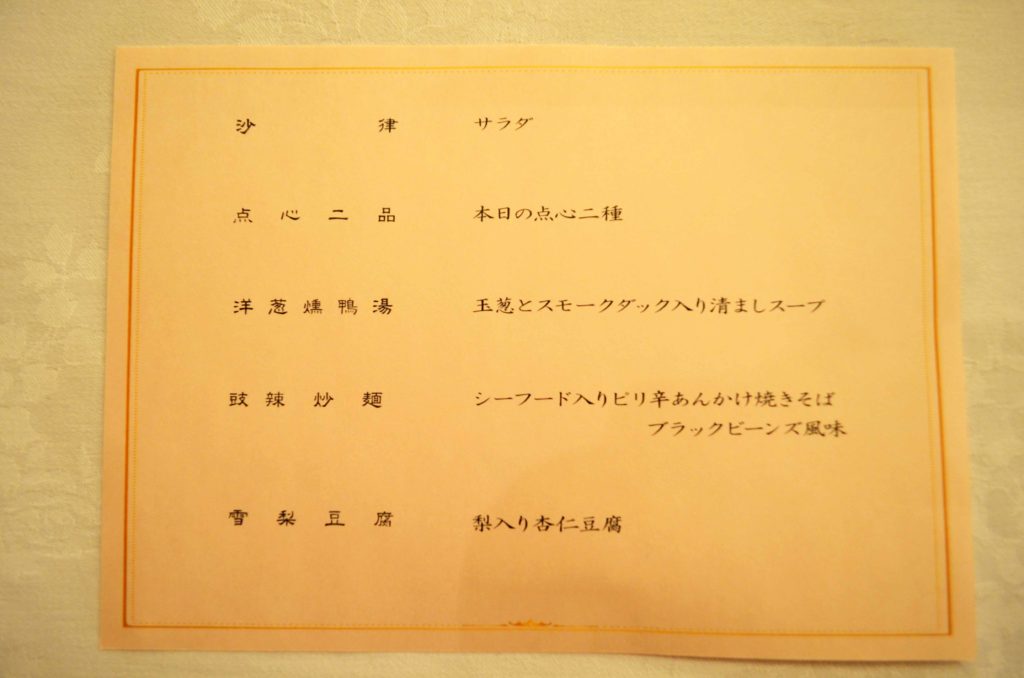 沙律 サラダ
点心二品 本日の点心二種
洋葱燻鴨湯 玉葱とスモークダック入り清ましスープ
豉辣炒麺 シーフード入りピリ辛あんかけ焼きそば
ブラックビーンズ風味
雪梨豆腐 梨入り杏仁豆腐